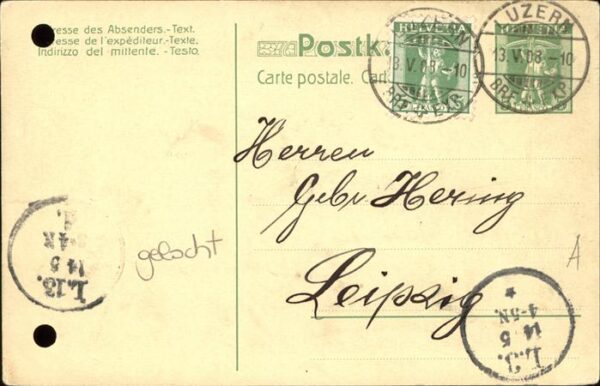 Adresse des Absenders.-Text.
Adresse de l'expéditeur.-Texte.
Indirizzo del mittente. -Testo.
Postk
Carte postale. Cart
HELVETIA
LUZERN
13.V.08.-10
BRF. EXP.
LUZERN
13.V.08.-10
BRF. EXP.
Herren
Gebr. Hering
Leipzig
gelocht
A
L.13.
14 5
3-4N
L.3.
14 5
4-5N.
*